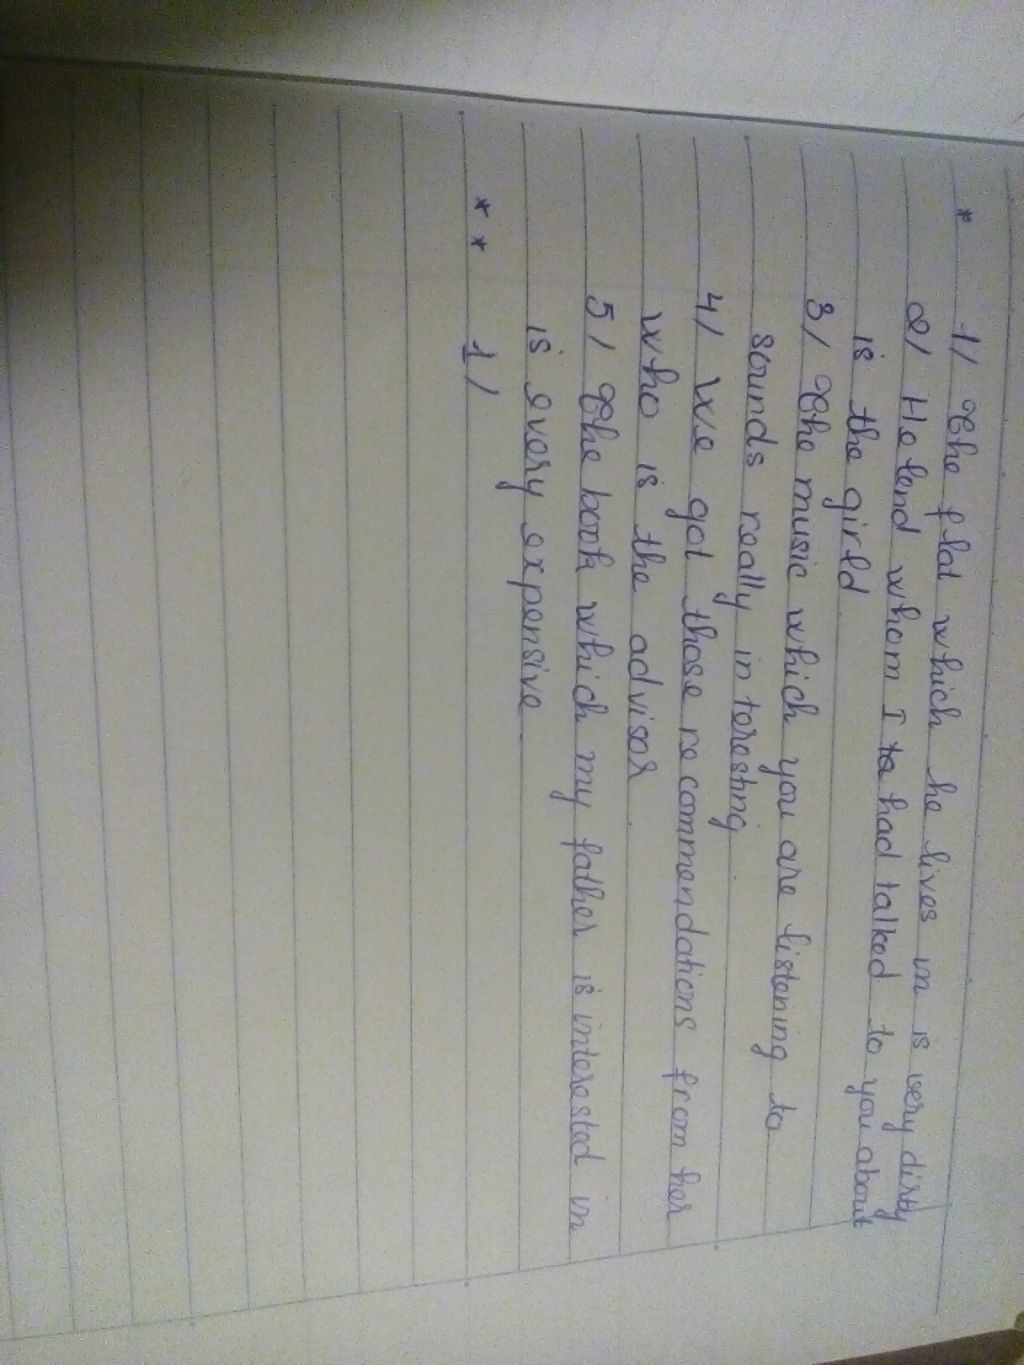 * 1/ The flat which he lives in is very dirty
2/ Helend whom I to had talked to you about
is the girld.
3/ The music which you are listening to
sounds really interesting.
4/ we got those recommendations from her
who is the advisor.
5/ The book which my father is interested in
is every expensive.
** 1/